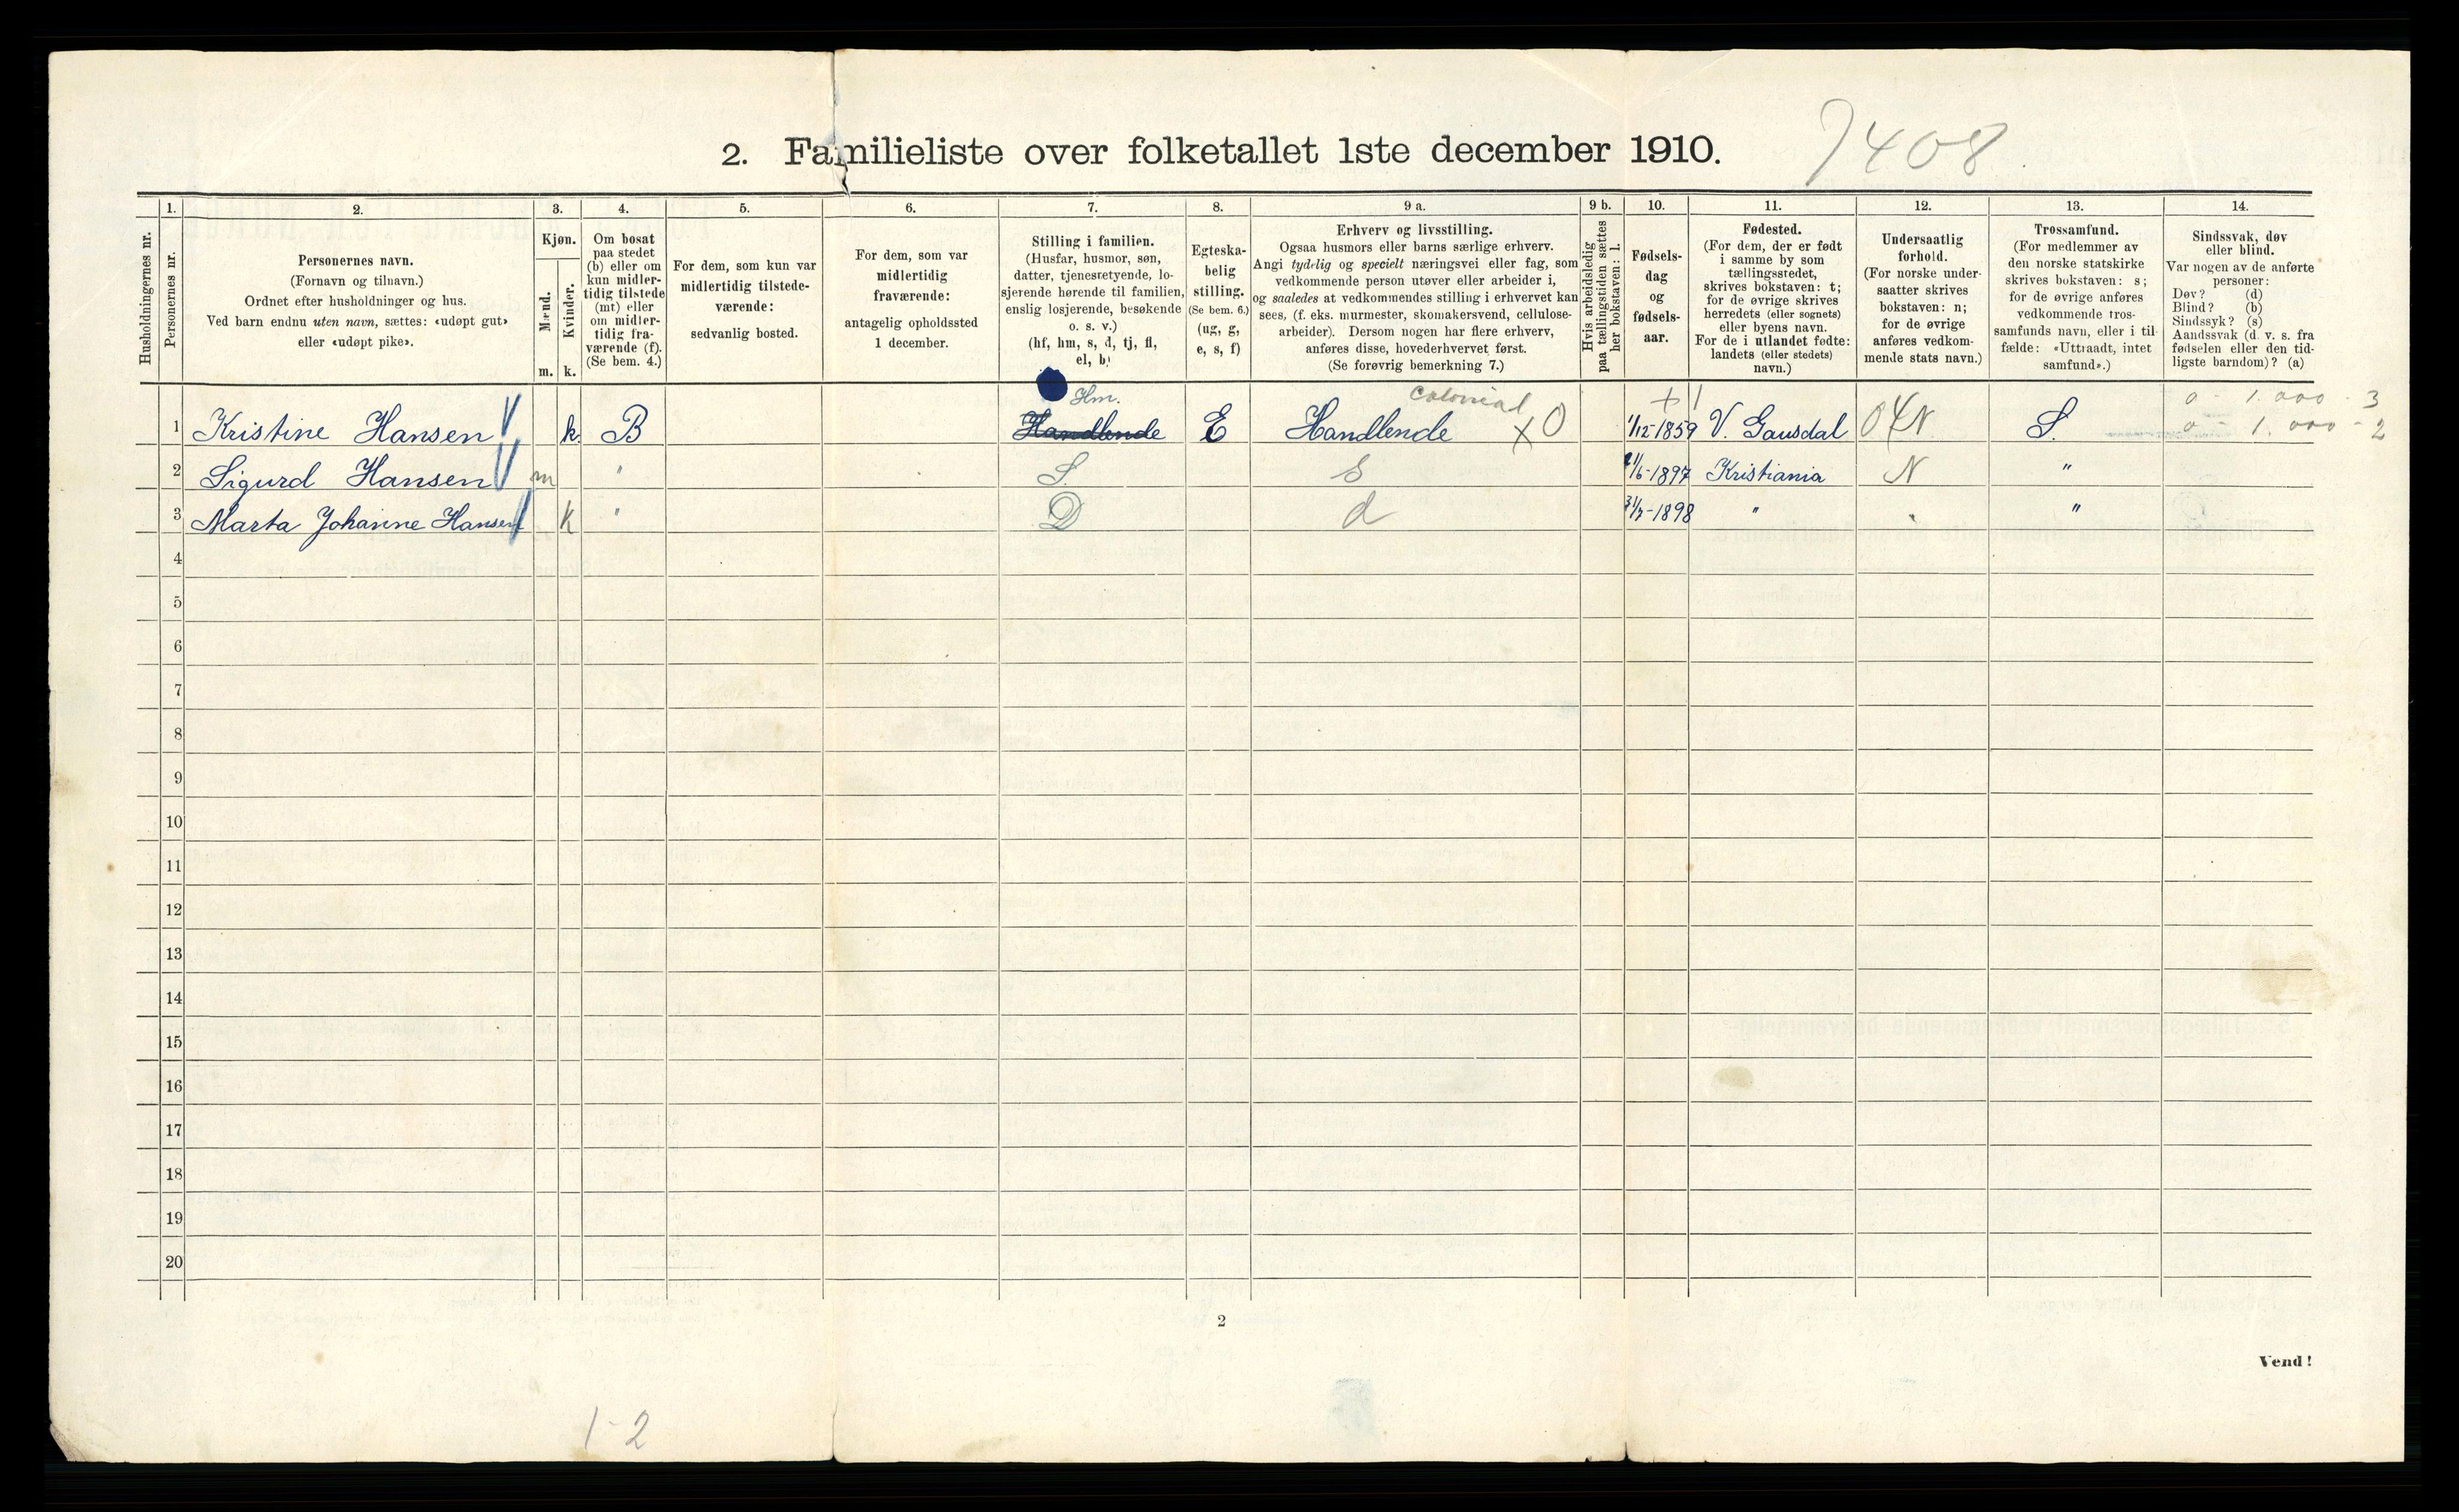 2. Familieliste over folketallet 1ste december 1910.
7408
Husholdningernes nr.
1.
Personernes nr.
2.
Personernes navn.
(Fornavn og tilnavn.)
Ordnet efter husholdninger og hus.
Ved barn endnu uten navn, sættes: «udøpt gut»
eller «udøpt pike».
3.
Kjøn.
Mænd.
m.
Kvinder.
k.
4.
Om bosat
paa stedet
(b) eller om
kun midler-
tidig tilstede
(mt) eller
om midler-
tidig fra-
værende (f).
(Se bem. 4.)
5.
For dem, som kun var
midlertidig tilstede-
værende:
sedvanlig bosted.
6.
For dem, som var
midlertidig
fraværende:
antagelig opholdssted
1 december.
7.
Stilling i familien.
(Husfar, husmor, søn,
datter, tjenestetyende, lo-
sjerende hørende til familien,
enslig losjerende, besøkende
o. s. v.)
(hf, hm, s, d, tj, fl,
el, b)
8.
Egteska-
belig
stilling.
(Se bem. 6.)
(ug, g,
e, s, f)
9 a.
Erhverv og livsstilling.
Ogsaa husmors eller barns særlige erhverv.
Angi tydelig og specielt næringsvei eller fag, som
vedkommende person utøver eller arbeider i,
og saaledes at vedkommendes stilling i erhvervet kan
sees, (f. eks. murmester, skomakersvend, cellulose-
arbeider). Dersom nogen har flere erhverv,
anføres disse, hovederhvervet først.
(Se forøvrig bemerkning 7.)
9 b.
Hvis arbeidsledig
paa tællingstiden sættes
her bokstaven: l.
10.
Fødsels-
dag
og
fødsels-
aar.
11.
Fødested.
(For dem, der er født
i samme by som
tællingsstedet,
skrives bokstaven: t;
for de øvrige skrives
herredets (eller sognets)
eller byens navn.
For de i utlandet fødte:
landets (eller stedets)
navn.)
12.
Undersaatlig
forhold.
(For norske under-
saatter skrives
bokstaven: n;
for de øvrige
anføres vedkom-
mende stats navn.)
13.
Trossamfund.
(For medlemmer av
den norske statskirke
skrives bokstaven: s;
for de øvrige anføres
vedkommende tros-
samfunds navn, eller i til-
fælde: «Uttraadt, intet
samfund».)
14.
Sindssvak, døv
eller blind.
Var nogen av de anførte
personer:
Døv? (d)
Blind? (b)
Sindssyk? (s)
Aandssvak (d. v. s. fra
fødselen eller den tid-
ligste barndom)? (a)
Hm. colonial + 1 0 - 1.000 - 3
1 Kristine Hansen k. B Handlende E Handlende x0 1/12-1859 V. Gausdal 04 N S. 0 - 1.000 - 2
2 Sigurd Hansen m " S. s /6-1897 Kristiania N "
3 Marta Johanne Hansen k " D d 31/7-1898 " "
4
5
6
7
8
9
10
11
12
13
14
15
16
17
18
19
20
2
Vend!
1-2